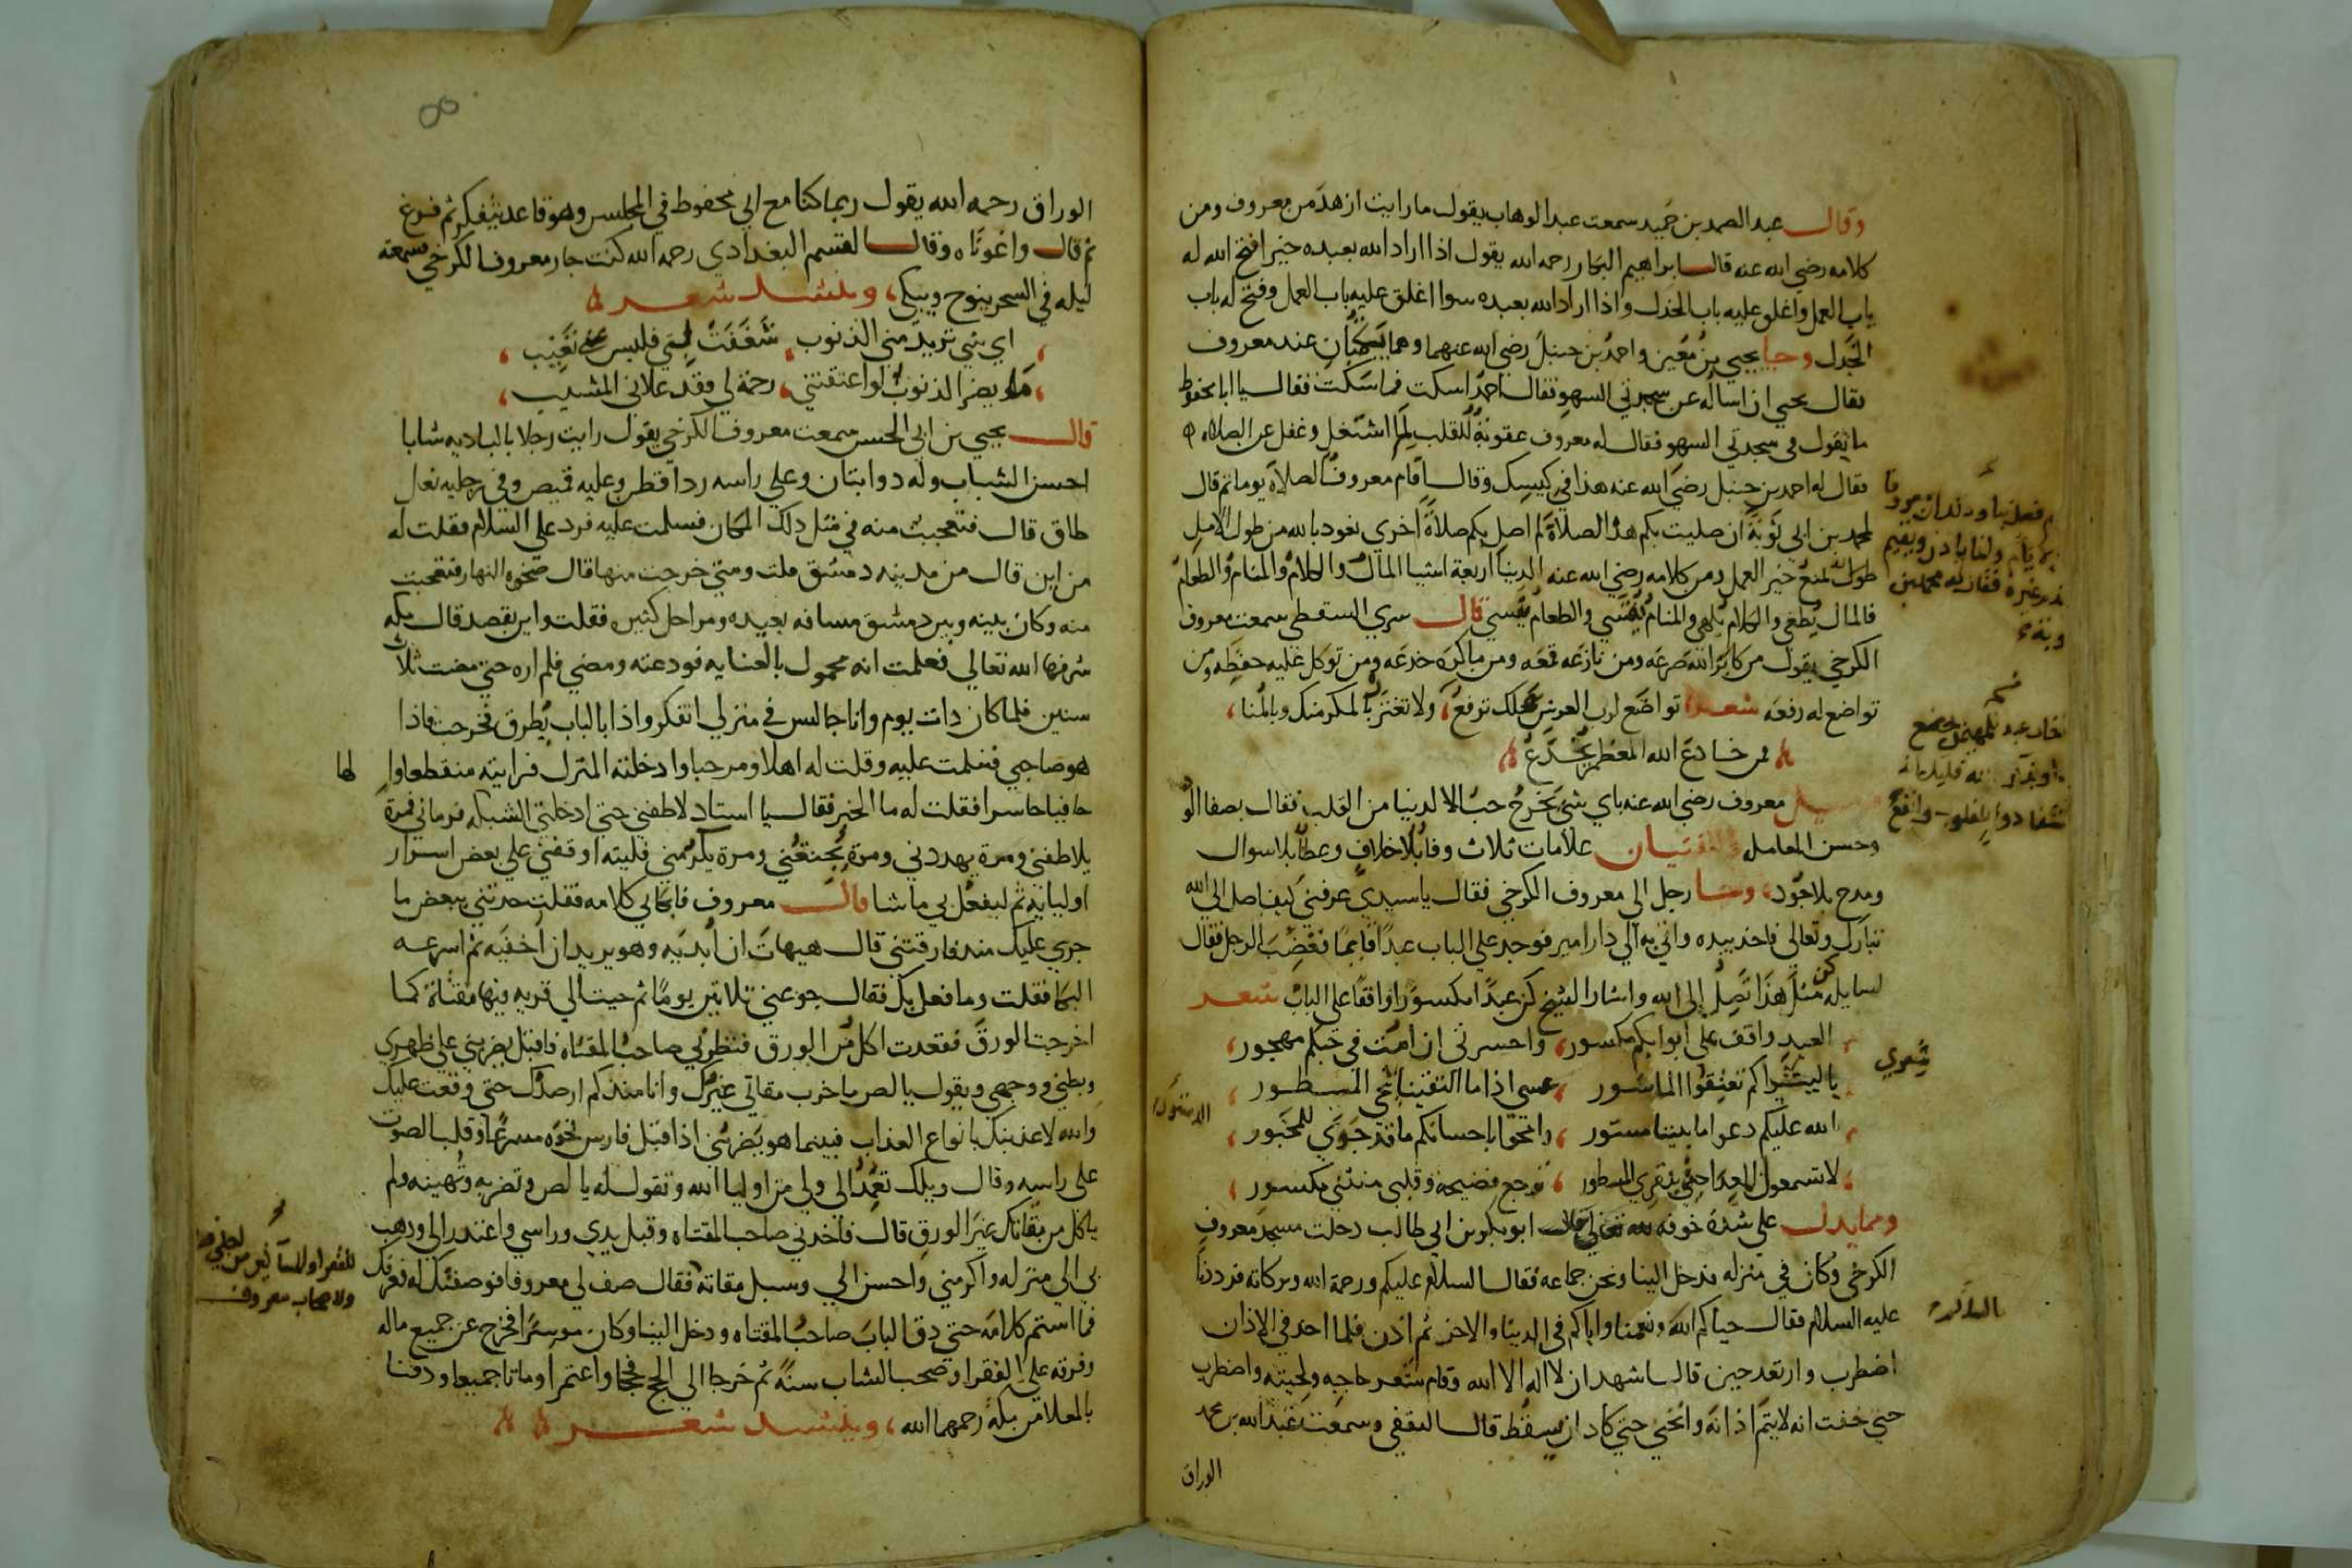 وقال عبد الصمد بن حميد سمعت عبد الوهاب يقول ما رايت ازهد من معروف ومن
كلامه رضي الله عنه قال ابراهيم البكار رحمه الله يقول اذا اراد الله بعبده خير افتح الله له
باب العمل واغلق عليه باب الجدل واذا اراد الله بعبده سوا اغلق عليه باب العمل وفتح له باب
الجدل وجا يحيي بن معين واحمد بن حنبل رضي الله عنهما وهما يكتبان عند معروف
فقال يحيي ان اساله عن سجدتي السهو فقال احمد اسكت فما سكت فقال يا ابا محفوظ
ما تقول في سجدتي السهو فقال له معروف عقوبة للقلب لم اشتغل وغفل عن الصلاه
فقال له احمد بن حنبل رضي الله عنه هذا في كيسك وقال اقام معروف الصلاة يوما ثم قال
لمحمد بن ابي توبة ان صليت بكم هذه الصلاة لم اصل بكم صلاة اخري نعود بالله من طول الامل
طول لمنع خير العمل ومن كلامه رضي الله عنه الدنيا اربعة اشيا المال والكلام والمنام والطعام
فالمال يطغي والكلام يلهي والمنام ينسي والطعام يقسي قال سري السقطي سمعت معروف
الكرخي يقول من كابر الله صرعه ومن نازعه قمعه ومن ماكره خدعه ومن توكل عليه حفظه ومن
تواضع له رفعه شعر تواضع لرب العرش علك ترفع ولا تغتر بالمكر منك وبالمنا
فمن خادع الله المعظم يخدع
معروف رضي الله عنه باي شي تخرج حب الدنيا من القلب فقال بصفا الود
وحسن المعامله للفتيان علامات ثلاث وفا بلا خلاف وعطا بلا سوال
ومدح بلا جود وجا رجل الي معروف الكرخي فقال يا سيدي عرفني كيف اصل الي الله
تبارك وتعالي فاخذ بيده واتي به الي دار امير فوجد علي الباب عبدا قايما فغضب الرجل فقال
لسايله كن مثل هذا تصل الي الله واشار الشيخ كن عبدا مكسورا واقفا علي الباب شعر
العبد واقف علي ابوابكم مكسور واحسرتي ان امت في حبكم مهجور
يا ليت تراكم تعتقوا الماسور عسي اذا ما التقينا تمحي المسطور
الله عليكم دعوا ما بيننا مستور وامحوا باحسانكم ما قد جري للمخبور
لا تسمعوا العدا حتي يقري المسطور نرجع فضيحه وقلبي منثني مكسور
ومما يدل علي شدة خوفه لله تعالي قال ابو بكر بن ابي طالب دخلت مسجد معروف
الكرخي وكان في منزله فدخل الينا ونحن جماعه فقال السلام عليكم ورحمة الله وبركاته فرددنا
عليه السلام فقال حياكم الله ونعمنا واياكم في الدنيا والاخر ثم اذن فلما اخد في الاذان
اضطرب وارتعد حين قال اشهد ان لا اله الا الله وقام شعر حاجبه ولحيته واضطرب
حتي خفت انه لا يتم اذانه وانحني حتي كاد ان يسقط قال الثقفي وسمعت عبد الله بن محمد
الوراق
شعري
الوراق رحمه الله يقول ربما كنا مع ابي محفوظ في المجلس وهو قاعد يتفكر ثم فزع
ثم قال واغوثاه وقال القسم البغدادي رحمه الله كنت جار معروف الكرخي سمعته
ليله في السحر ينوح ويبكي وينشد شعر
اي شي تريد مني الذنوب شغفت بي فليس عني تغيب
ما يضر الذنوب لو اعتقتني رحمة لي وقد علاني المشيب
قال يحيي بن ابي الحسن سمعت معروف الكرخي يقول رايت رجلا بالباديه شابا
احسن الشباب وله دوابتان وعلي راسه ردا قطن وعليه قميص وفي رجليه نعال
طاق قال فتعجبت منه في مثل ذلك المكان فسلمت عليه فرد علي السلام فقلت له
من اين قال من مدينه دمشق قلت ومتي خرجت منها قال ضحوه النهار فتعجبت
منه وكان بينه وبين دمشق مسافه بعيده ومراحل كثيره فقلت واين تقصد قال مكه
شرفها الله تعالي فعلمت انه محمول بالعنايه فودعته ومضي فلم اره حتي مضت ثلاث
سنين فلما كان دات يوم وانا جالس في منزلي اتفكر واذا بالباب يطرق فخرجت فاذا
هو صاحبي فسلمت عليه وقلت له اهلا ومرحبا وادخلته المنزل فرايته منقطعا والها
حافيا حاسرا فقلت له ما الخبر فقال يا استاد لاطفني حتي ادخلني الشبكه فرماني فمرة
يلاطفني ومرة يهددني ومرة يجوعني ومرة يكرمني فليته اوقفني علي بعض اسرار
اوليايه ثم ليفعل بي ما شا قال معروف فابكاني كلامه فقلت حدثني ببعض ما
جري عليك مند فارقتني قال هيهات ان ابديه وهو يريد ان اخفيه ثم اسرعه
البكا فقلت وما فعل بك فقال جوعني ثلاثين يوما ثم جيت الي قريه فيها مقثاة كما
اخرجت الورق فقعدت اكل من الورق فنظرني صاحب المقثاه فاقبل يضربني علي ظهري
وبطني ووجهي ويقول يا لص ما خرب مقاتي غيرك وانا مند كم ارصدك حتي وقعت عليك
والله لاعذبنك بانواع العذاب فبينما هو يضربني اذ اقبل فارس نحوه مسرعا وقلب الصوت
علي راسه وقال ويلك تعمد الي ولي من اوليا الله وتقول له يا لص وتضربه وتهينه ولم
ياكل من مقاتك غير الورق قال فاخدني صاحب المقتاه وقبل يدي وراسي واعتدر الي ودهب
بي الي منزله واكرمني واحسن الي وسبل مقاته فقال صف لي معروفا فوصفتك له فعرفك
فما استتم كلامه حتي دق الباب صاحب المقتاه ودخل الينا وكان موسرا فخرج عن جميع ماله
وفرقه علي الفقرا وصحب الشاب سنة ثم خرجا الي الحج فحجا واعتمرا وماتا جميعا ودفنا
بالمعلا من مكة رحمهما الله وينشد شعر
ولاصحاب معروف